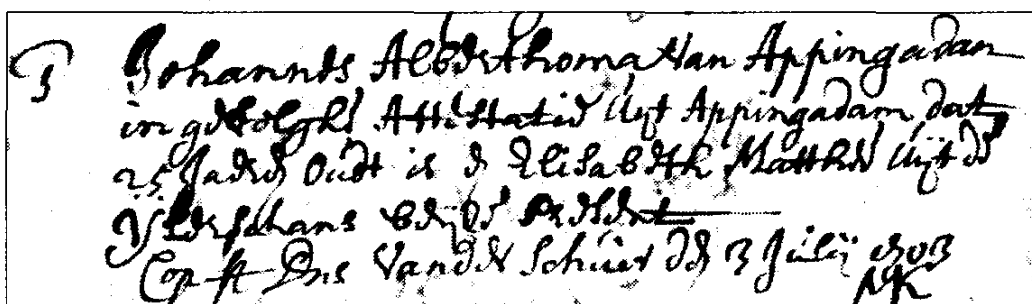 Johannes Alberthoma Van Appingadam
in gevolghe Attestatie Uijt Appingadam dat
25 Jaeren Oudt is & Elisabeth Matthes Uijt de
Ylderschans beijde Present
Cop ft Dns Van der Schuer den 3 Julij 1703